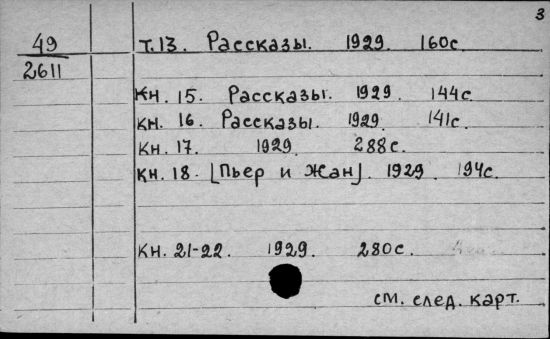 3
49 т.13. Рассказы. 1929. 160с.
2611
кн. 15. Рассказы. 1929. 144с.
кн. 16. Рассказы. 1929. 141с.
кн. 17. 1929. 288с.
кн. 18. [Пьер и Жан]. 1929. 194с.
кн. 21-22. 1929. 280с.
см. след. карт.